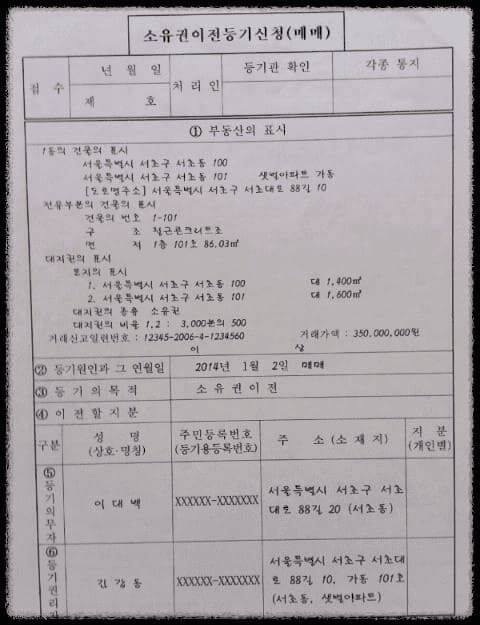 소유권이전등기신청(매매)
접 수
년 월 일
제 호
처 리 인
등기관 확인
각종 통지
① 부동산의 표시
1동의 건물의 표시
서울특별시 서초구 서초동 100
서울특별시 서초구 서초동 101 샛별아파트 가동
[도로명주소] 서울특별시 서초구 서초대로 88길 10
전유부분의 건물의 표시
건물의 번호 1-101
구 조 철근콘크리트조
면 적 1층 101호 86.03㎡
대지권의 표시
토지의 표시
1. 서울특별시 서초구 서초동 100 대 1,400㎡
2. 서울특별시 서초구 서초동 101 대 1,600㎡
대지권의 종류 소유권
대지권의 비율 1,2 : 3,000분의 500
거래신고일련번호 : 12345-2006-4-1234560 거래가액 : 350,000,000원
이 상
② 등기원인과 그 연월일 2014년 1월 2일 매매
③ 등기의 목적 소유권이전
④ 이전할 지분
구분
성 명
(상호·명칭)
주민등록번호
(등기용등록번호)
주 소 (소 재 지)
지 분
(개인별)
⑤ 등기의무자
이 대 백
XXXXXX-XXXXXXX
서울특별시 서초구 서초
대로 88길 20 (서초동)
⑥ 등기권리
김 갑 동
XXXXXX-XXXXXXX
서울특별시 서초구 서초대
로 88길 10, 가동 101호
(서초동, 샛별아파트)